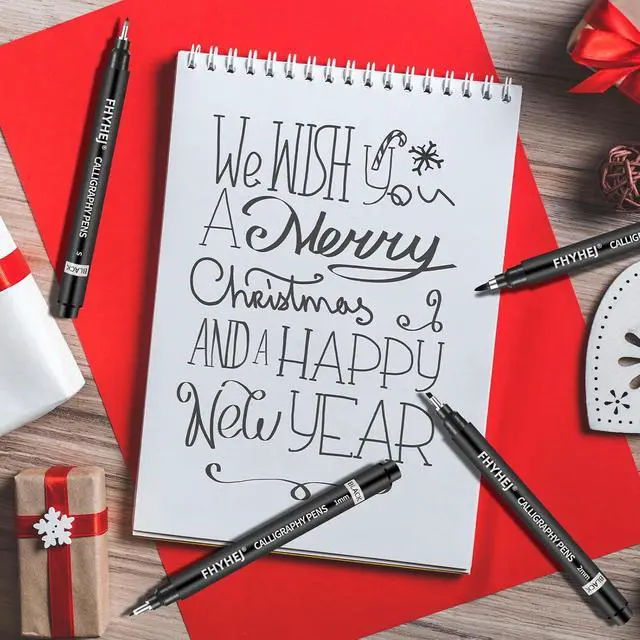 We WISH You
A Merry
Christmas
AND A HAPPY
New YEAR
FHYHEJ® CALLIGRAPHY PENS S BLACK
FHYHEJ® CALLIG
FHYHEJ® CALLIGRAPHY PENS 1mm BLACK
FHYHEJ® CALLIGRAPHY PENS 2mm BLACK